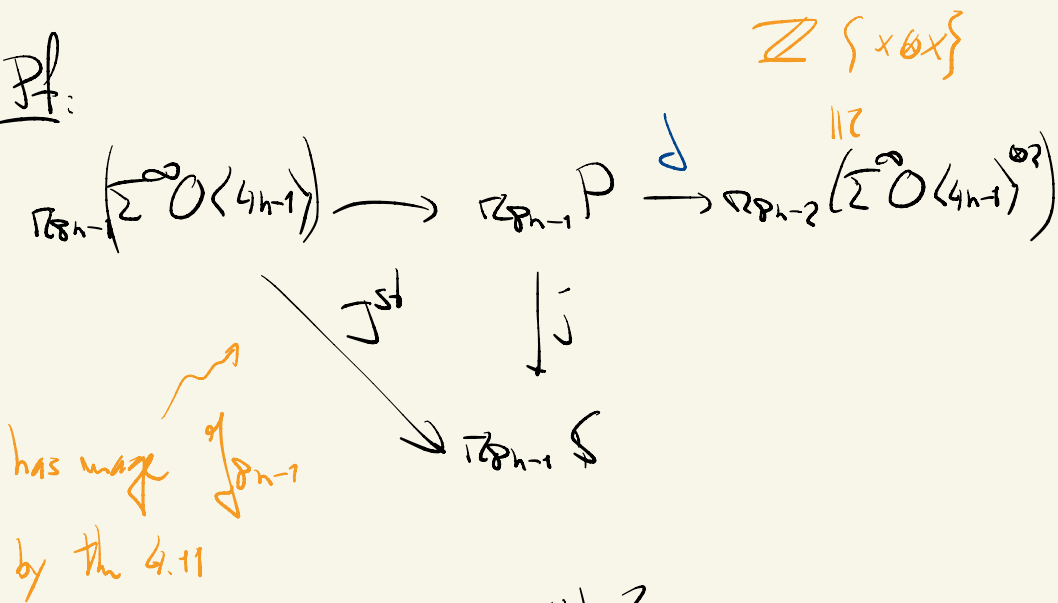 ℤ {x⊗x}
Pf:
≅
π_{8n-1}(Σ^∞ O⟨4n-1⟩) → π_{8n-1} P →^{d} π_{8n-2}(Σ^∞ O⟨4n-1⟩^{⊗2})
J^{st} ↓ j
π_{8n-1} 𝕊
has image 𝒥_{8n-1}
by thm 4.11